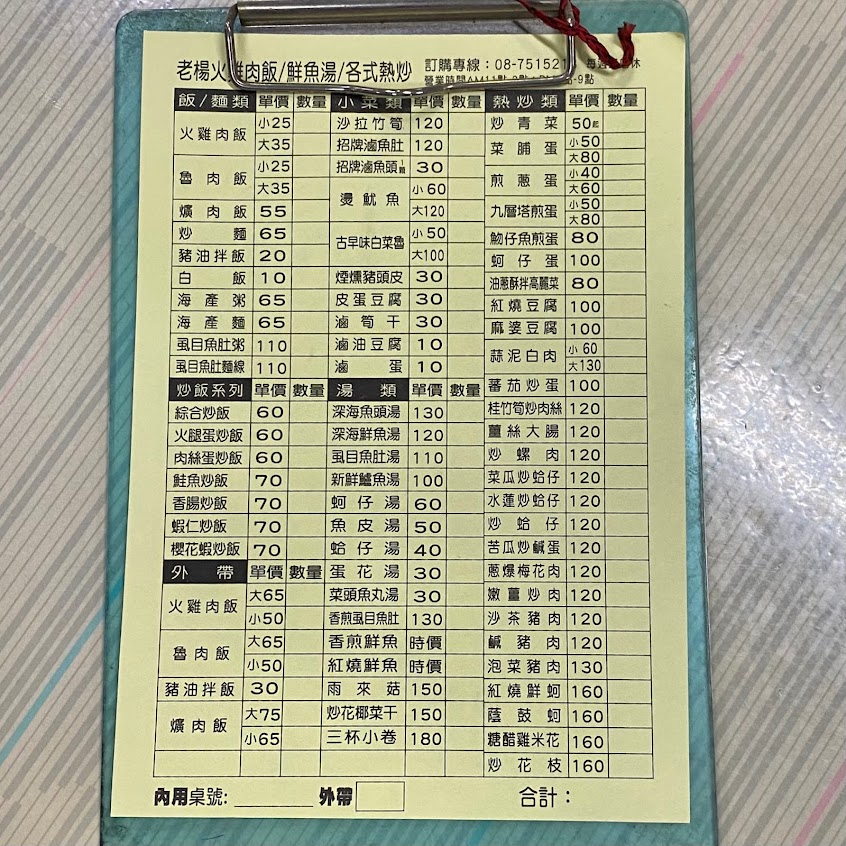 老楊火雞肉飯/鮮魚湯/各式熱炒
訂購專線：08-751521
營業時間AM11點
飯/麵類 單價 數量
火雞肉飯 小25
大35
魯肉飯 小25
大35
爌肉飯 55
炒麵 65
豬油拌飯 20
白飯 10
海產粥 65
海產麵 65
虱目魚肚粥 110
虱目魚肚麵線 110
炒飯系列 單價 數量
綜合炒飯 60
火腿蛋炒飯 60
肉絲蛋炒飯 60
鮭魚炒飯 70
香腸炒飯 70
蝦仁炒飯 70
櫻花蝦炒飯 70
外帶 單價 數量
火雞肉飯 大65
小50
魯肉飯 大65
小50
豬油拌飯 30
爌肉飯 大75
小65
小菜類 單價 數量
沙拉竹筍 120
招牌滷魚肚 120
招牌滷魚頭1顆 30
燙魷魚 小60
大120
古早味白菜魯 小50
大100
煙燻豬頭皮 30
皮蛋豆腐 30
滷筍干 30
滷油豆腐 10
滷蛋 10
湯類 單價 數量
深海魚頭湯 130
深海鮮魚湯 120
虱目魚肚湯 110
新鮮鱸魚湯 100
蚵仔湯 60
魚皮湯 50
蛤仔湯 40
蛋花湯 30
菜頭魚丸湯 30
香煎虱目魚肚 130
香煎鮮魚 時價
紅燒鮮魚 時價
雨來菇 150
炒花椰菜干 150
三杯小卷 180
熱炒類 單價 數量
炒青菜 50起
菜脯蛋 小50
大80
煎蔥蛋 小40
大60
九層塔煎蛋 小50
大80
魩仔魚煎蛋 80
蚵仔蛋 100
油蔥酥拌高麗菜 80
紅燒豆腐 100
麻婆豆腐 100
蒜泥白肉 小60
大130
蕃茄炒蛋 100
桂竹筍炒肉絲 120
薑絲大腸 120
炒螺肉 120
菜瓜炒蛤仔 120
水蓮炒蛤仔 120
炒蛤仔 120
苦瓜炒鹹蛋 120
蔥爆梅花肉 120
嫩薑炒肉 120
沙茶豬肉 120
鹹豬肉 120
泡菜豬肉 130
紅燒鮮蚵 160
蔭鼓蚵 160
糖醋雞米花 160
炒花枝 160
內用桌號: 外帶 合計：